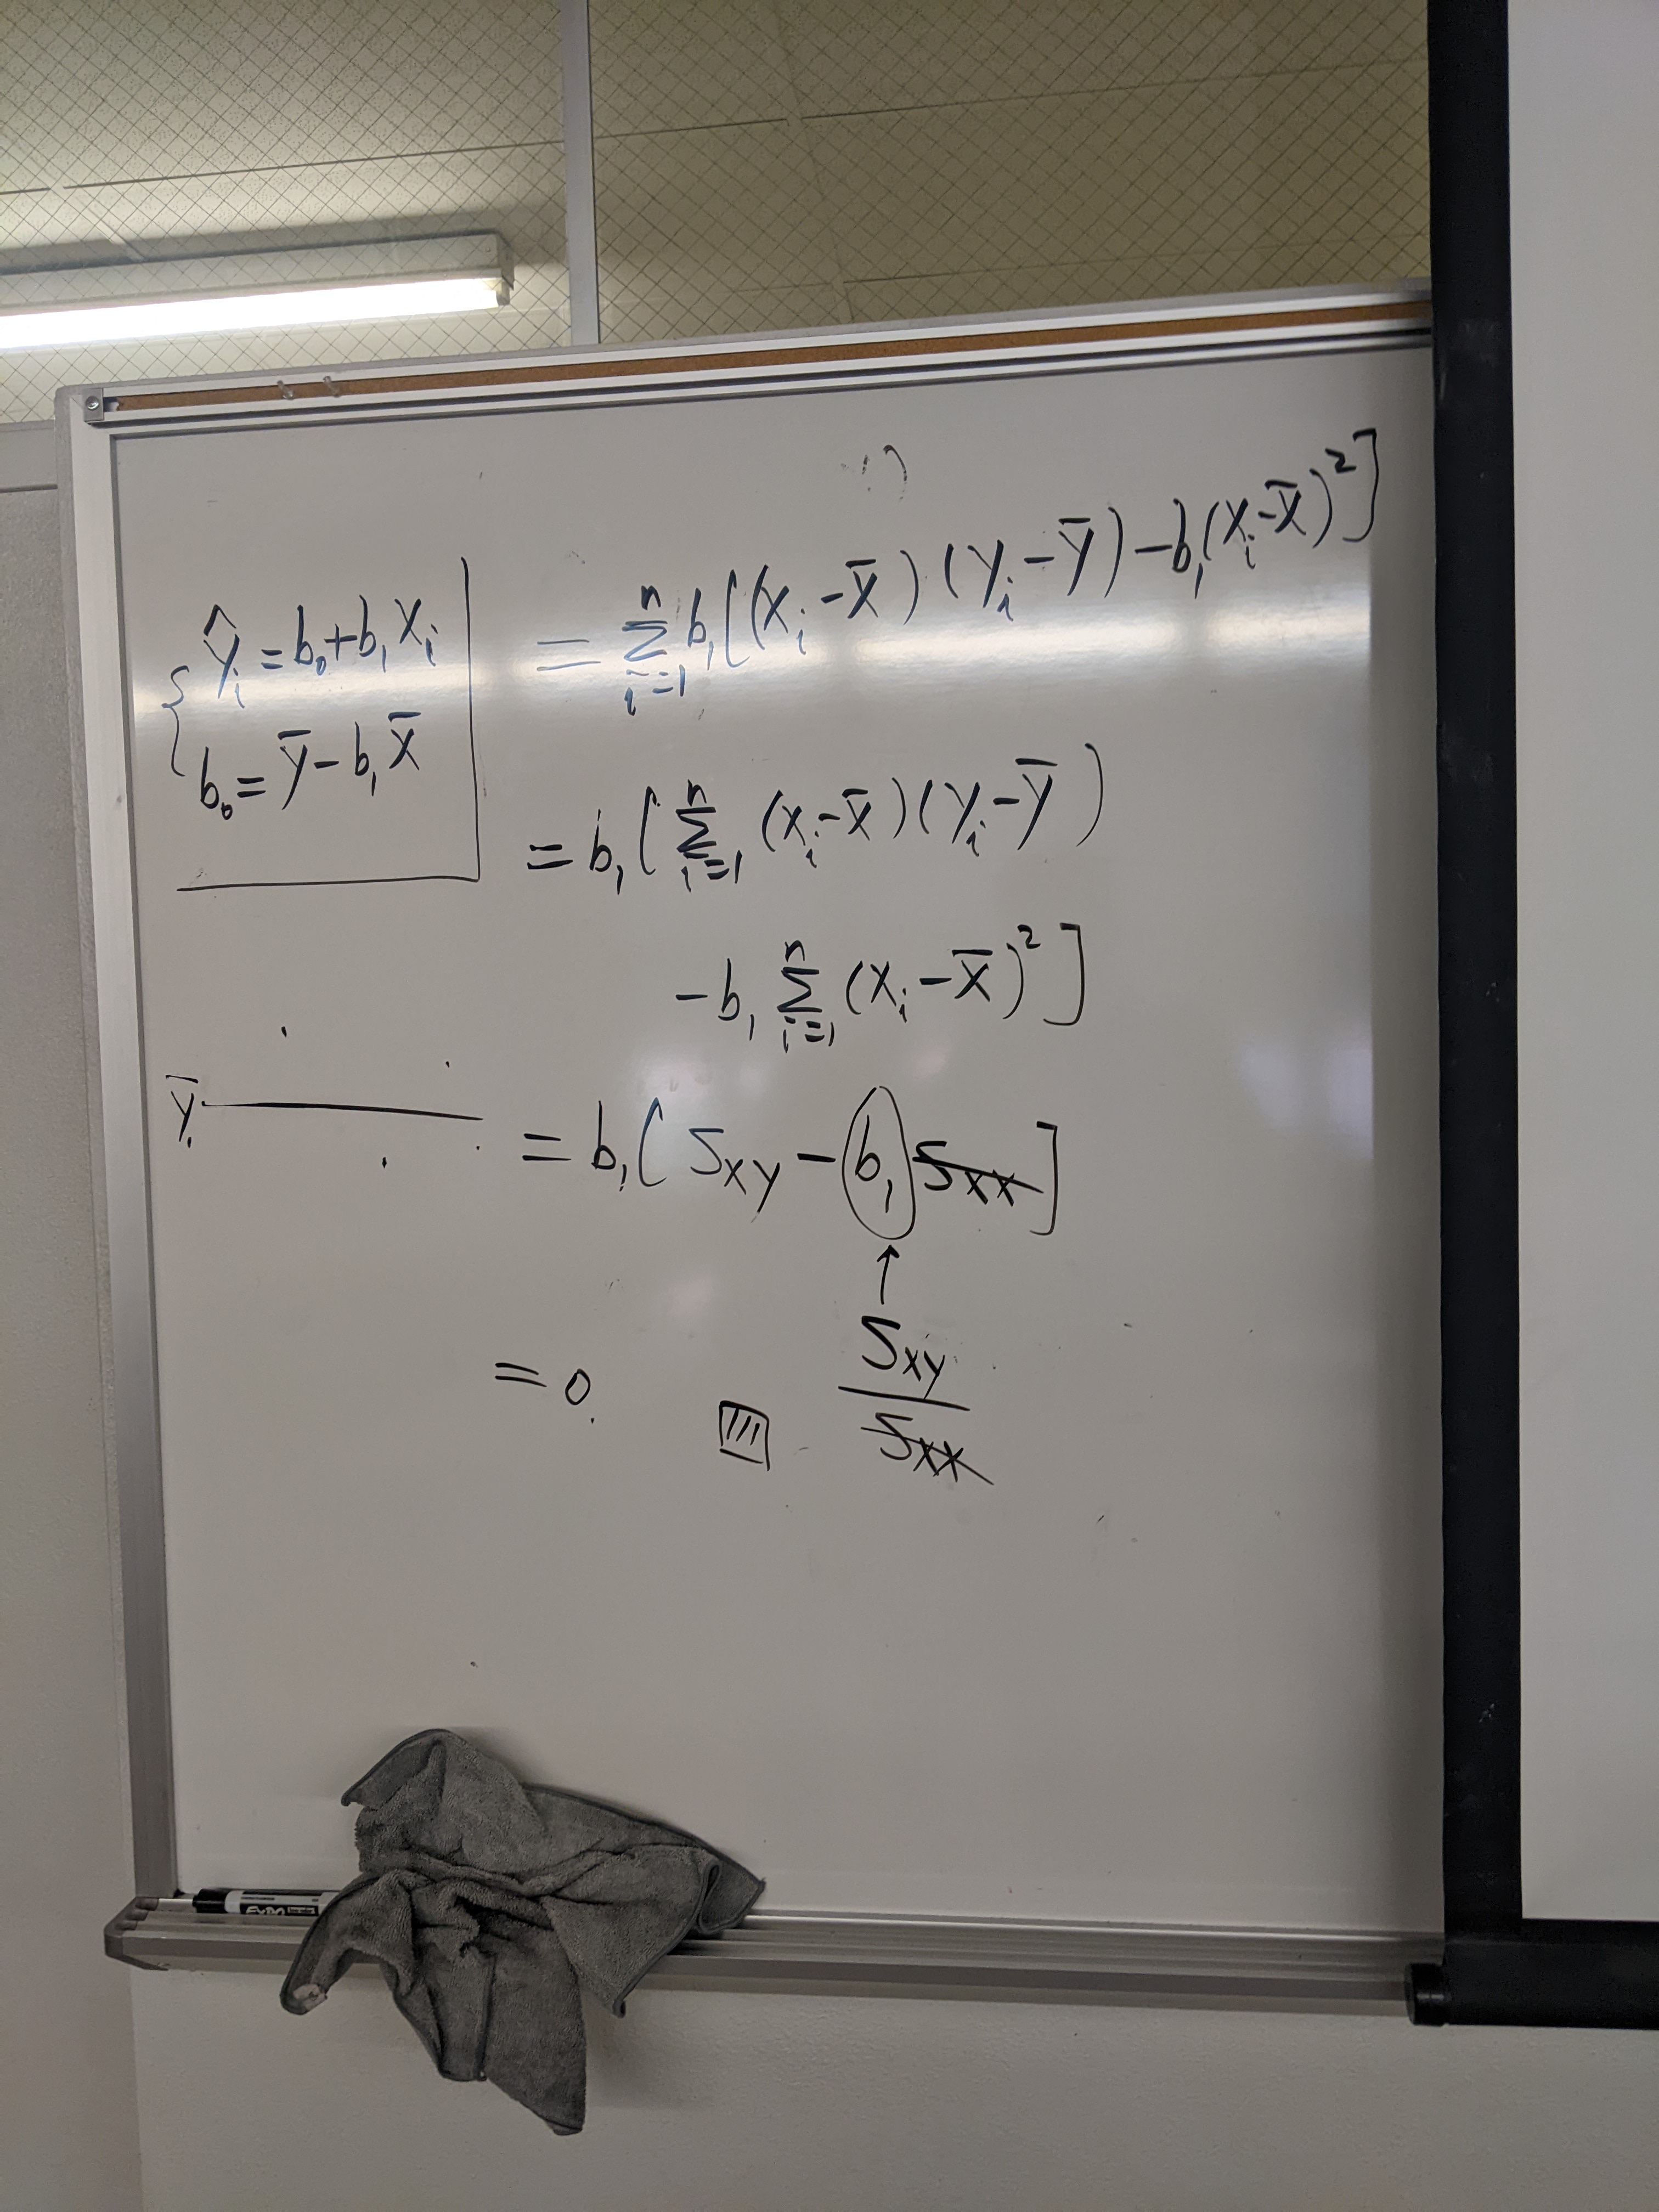 ŷᵢ = b₀ + b₁xᵢ
b₀ = ȳ - b₁x̄
= Σⁿᵢ₌₁ b₁[(xᵢ - x̄)(yᵢ - ȳ) - b₁(xᵢ - x̄)²]
= b₁(Σⁿᵢ₌₁ (xᵢ - x̄)(yᵢ - ȳ)
- b₁ Σⁿᵢ₌₁ (xᵢ - x̄)²]
ȳ
= b₁[Sxy - b₁Sxx]
↑
Sxy
Sxx
= 0.
EXPO